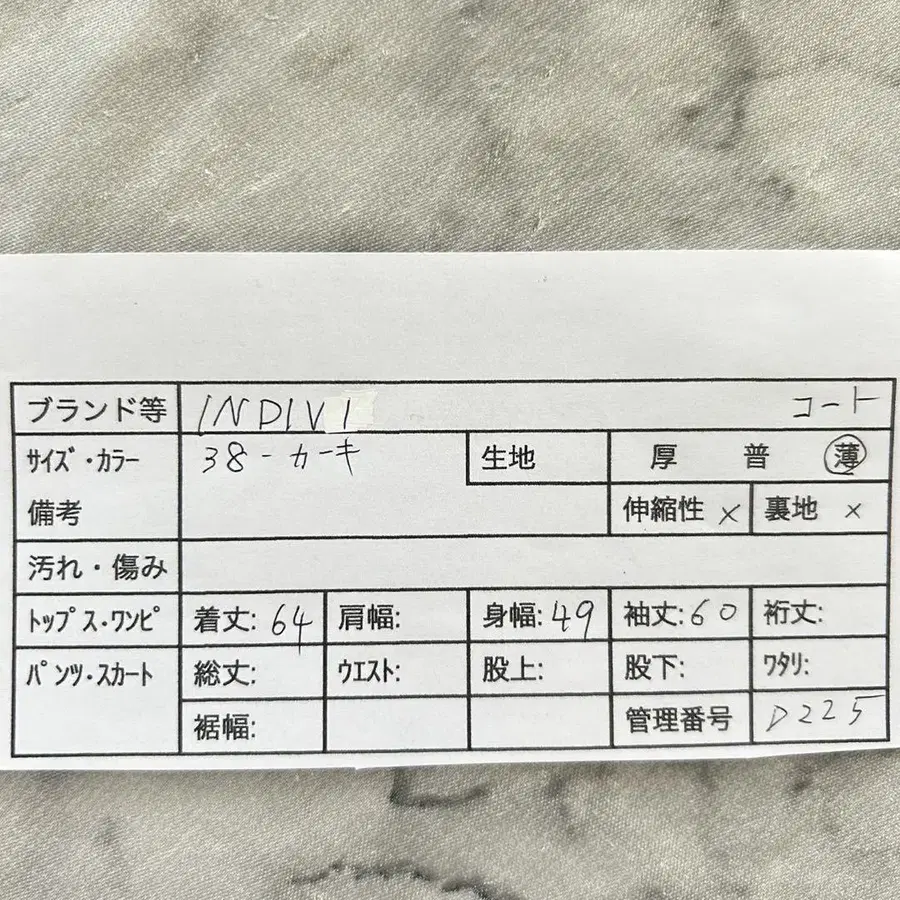 ブランド等 INDIVI コート
サイズ・カラー 38-カーキ 生地 厚 普 薄
備考 伸縮性 × 裏地 ×
汚れ・傷み
トップス・ワンピ 着丈: 64 肩幅: 身幅: 49 袖丈: 60 裄丈:
パンツ・スカート 総丈: ウエスト: 股上: 股下: ワタリ:
裾幅: 管理番号 D225